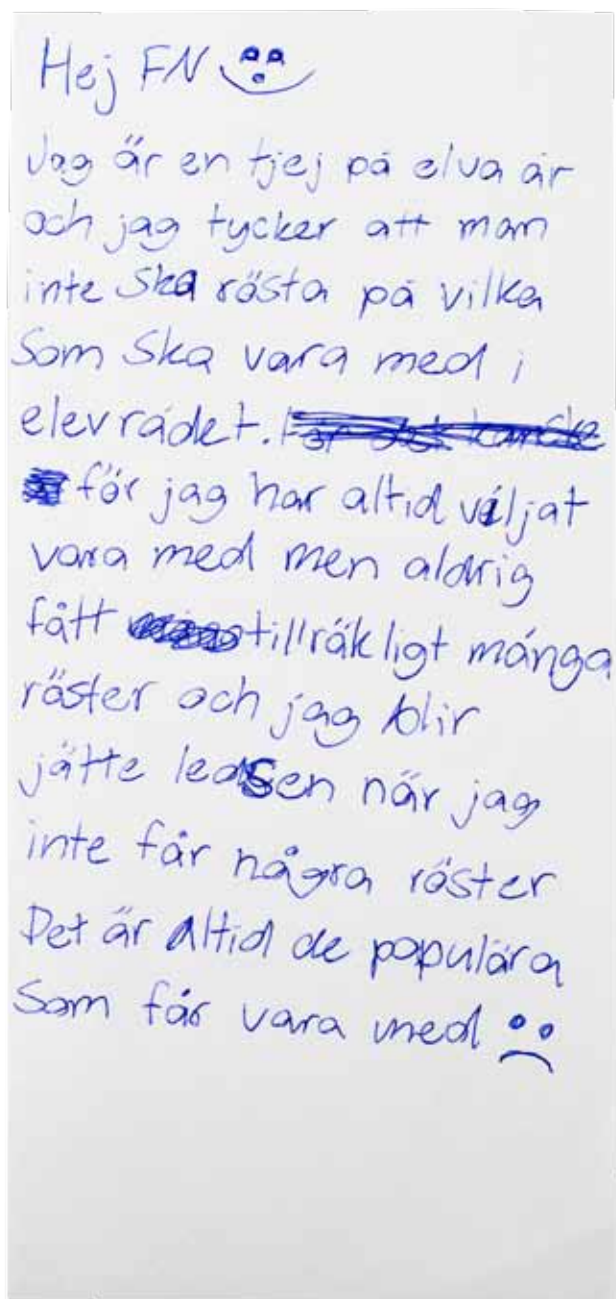 Hej FN
Jag är en tjej på elva år
och jag tycker att man
inte ska rösta på vilka
Som Ska vara med i
elevrådet.
för jag har altid viljat
vara med men aldrig
fått tillräkligt många
röster och jag blir
jätte ledsen när jag
inte får några röster
Det är altid de populära
Som får vara med